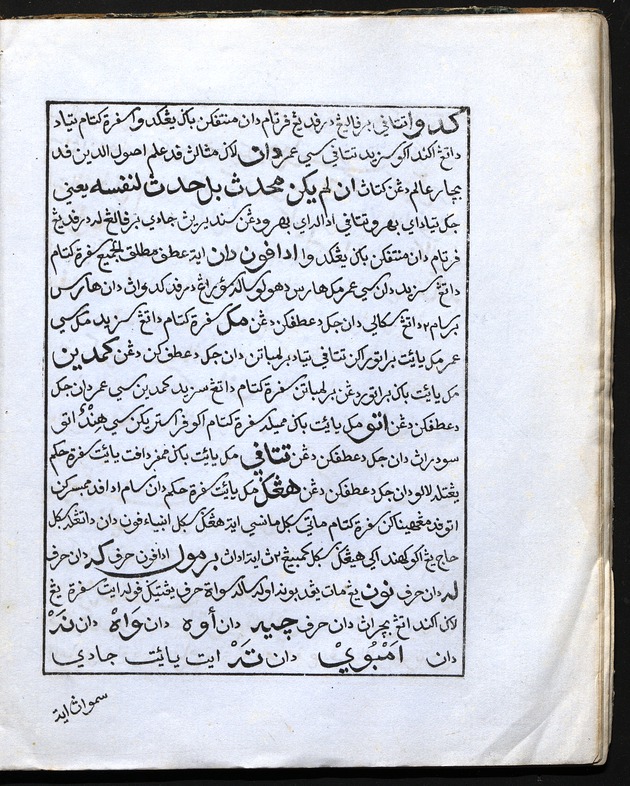 كدوا اتتافي برفاليڠ درفديڠ فرتام دان منتفكن باݢي يڠكدوا سفرة كتام تياد
داتڠ اكندا كو سزيد تتافي سي عمر دان لاݢي مثالن فد علم اصول الدين فد
بچار عالم دڠن كتاث ان لم يكن محدث بل حدث لنفسه يعني
جك تياد اي بهرو تتافي اداله اي بهرو دڠن سنديرين جادي برفاليڠ له درفديڠ
فرتام دان منتفكن باݢي يڠكدوا ادافون دان ايت عطف مطلق الجميع سفرة كتام
داتڠ سزيد دان سي عمر مك هارس دهولو ساله سؤرڠ درفد كدوان دان هارس
برسام٢ داتڠ سكالي دان جك دعطفكن دڠن مك سفرة كتام داتڠ سزيد مك سي
عمر مك يائيت براتوران تتافي تياد برلمباتن دان جك دعطفكن دڠن كمدين
مك يائيت باݢي براتور دڠن برلمباتن سفرة كتام داتڠ سزيد كمدين سي عمر دان جك
دعطفكن دڠن اتو مك يائيت باݢي مميله سفرة كتام اكو فراستريكن سي هند اتو
سودران دان جك دعطفكن دڠن تتافي مك يائيت باݢي ممڤردافت يائيت سفرة حكم
يڠتله لالو دان جك دعطفكن دڠن هڠݢ مك يائيت سفرة حكم دان سام اد افد ممبسركن
اتو فد مڠهيناكن سفرة كتام ماتي سكل مانسي ايت هڠݢ سكل انبياء فون دان داتڠله سكل
حاج يڠ اكو لهند اكي هيڠݢ سكل كمبيڠ٢ن ايت دان برمول ادافون حرف كه دان حرف
له دان حرف نون يڠ مات يڠد بوبوه اوله سالهسوات حرف يڠتيݢ فوله ايت سفرة يڠ
لاݢي اكندا تڠ بچران دان حرف چيه دان أوه دان واه دان نذ
دان امبوي دان تذ ايت يائيت جادي
سموان ايت